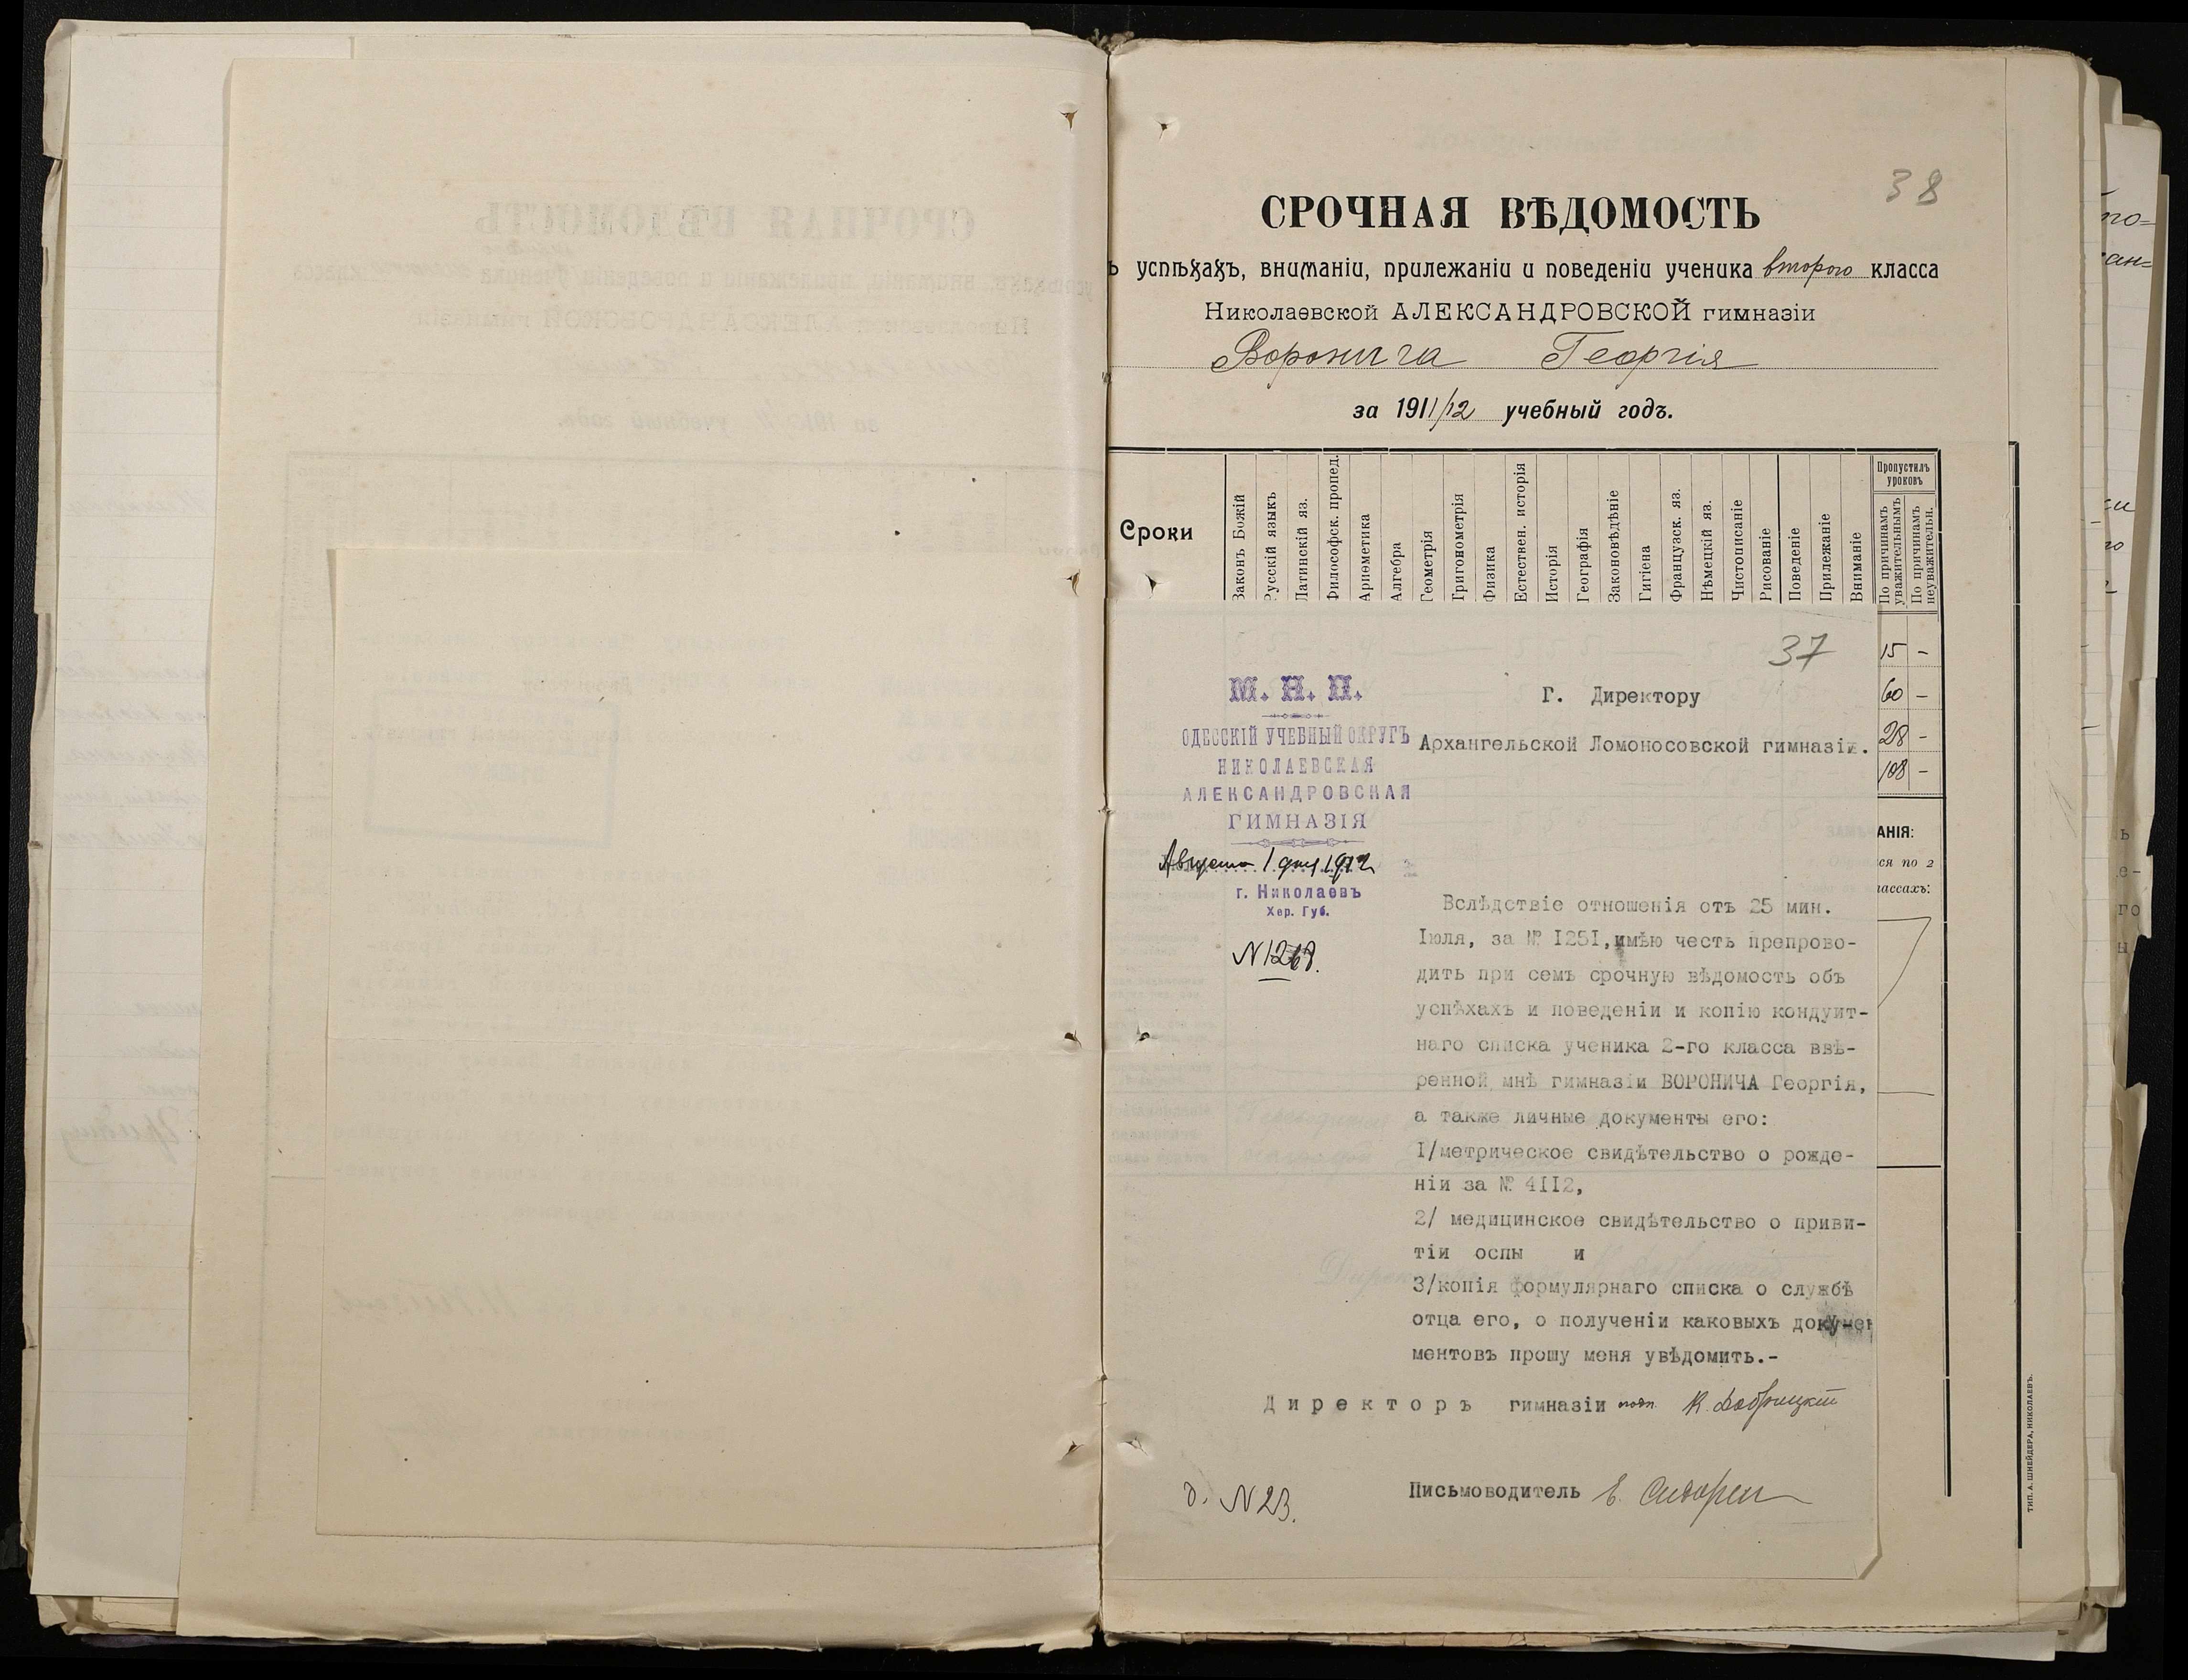 38
СРОЧНАЯ ВѢДОМОСТЬ
ъ успѣхахъ, вниманіи, прилежаніи и поведеніи ученика второго класса
Николаевской АЛЕКСАНДРОВСКОЙ гимназіи
Воронича Георгія
за 1911/12 учебный годъ.
Сроки
Законъ Божій
Русскій языкъ
Латинскій яз.
Философск. пропед.
Ариѳметика
Алгебра
Геометрія
Тригонометрія
Физика
Естествен. исторія
Исторія
Географія
Законовѣдѣніе
Гигіена
Французск. яз.
Нѣмецкій яз.
Чистописаніе
Рисованіе
Поведеніе
Прилежаніе
Вниманіе
Пропустилъ уроковъ
По причинамъ уважительнымъ
По причинамъ неуважительн.
15 -
60 -
28 -
108 -
АНІЯ:
ся по 2
лассахъ:
37
М. Н. П.
ОДЕССКІЙ УЧЕБНЫЙ ОКРУГЪ
НИКОЛАЕВСКАЯ
АЛЕКСАНДРОВСКАЯ
ГИМНАЗІЯ
Августа 1 дня 1912
г. Николаевъ
Хер. Губ.
N 1268.
Г. Директору
Архангельской Ломоносовской гимназіи.
Вслѣдствіе отношенія отъ 25 мин.
Іюля, за № I25I, имѣю честь препрово-
дить при семъ срочную вѣдомость объ
успѣхахъ и поведеніи и копію кондуит-
наго списка ученика 2-го класса ввѣ-
ренной мнѣ гимназіи ВОРОНИЧА Георгія,
а также личные документы его:
I/метрическое свидѣтельство о рожде-
ніи за № 4II2,
2/ медицинское свидѣтельство о приви-
тіи оспы и
3/копія формулярнаго списка о службѣ
отца его, о полученіи каковыхъ докумен
ментовъ прошу меня увѣдомить.-
Директоръ гимназіи подп. К.
Письмоводитель
д. N 23.
ТИП. А. ШНЕЙДЕРА, НИКОЛАЕВЪ.